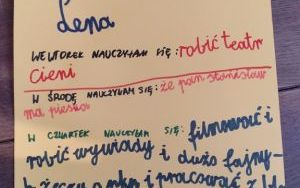 Lena
WE WTOREK NAUCZYŁAM SIĘ: robić teatr
Cieni
W ŚRODĘ NAUCZYŁAM SIĘ: że pan Stanisław
ma pieska
W CZWARTEK NAUCZYŁAM SIĘ: filmować i
robić wywiady i dużo fajny-
i pracować z